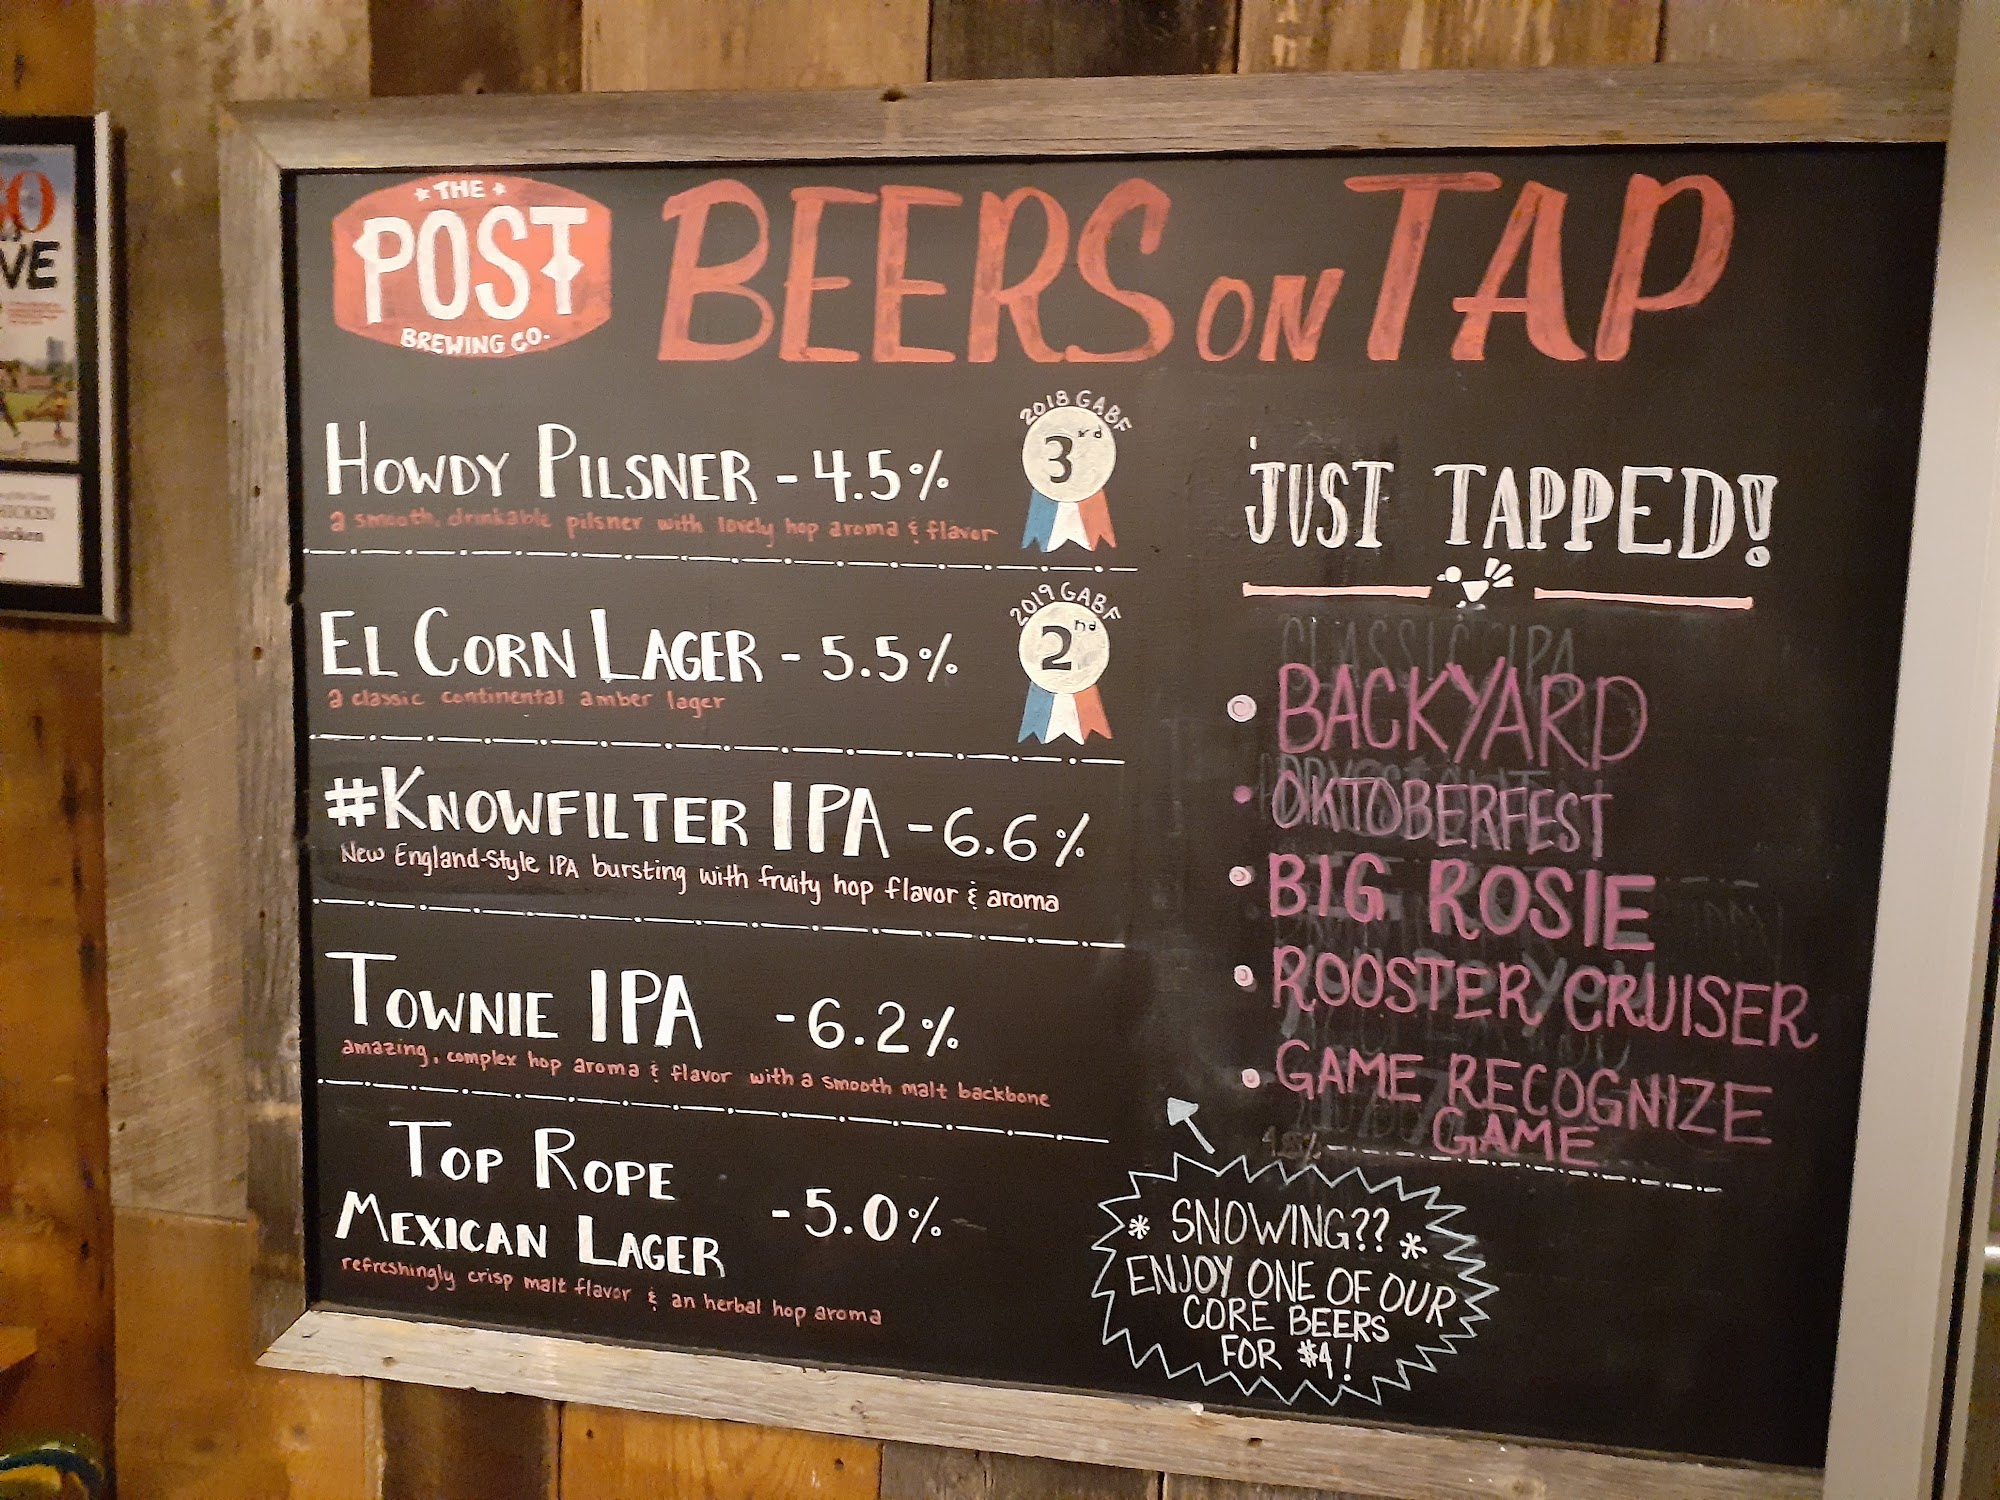 THE
POST
BREWING CO.
BEERS ON TAP
HOWDY PILSNER - 4.5%
a smooth, drinkable pilsner with lovely hop aroma & flavor
2018 GABF
3rd
EL CORN LAGER - 5.5%
a classic continental amber lager
2019 GABF
2nd
#KNOWFILTER IPA - 6.6%
New England-Style IPA bursting with fruity hop flavor & aroma
TOWNIE IPA - 6.2%
amazing, complex hop aroma & flavor with a smooth malt backbone
TOP ROPE
MEXICAN LAGER - 5.0%
refreshingly crisp malt flavor & an herbal hop aroma
JUST TAPPED!
CLASSIC IPA
BACKYARD
OKTOBERFEST
BIG ROSIE
ROOSTER CRUISER
GAME RECOGNIZE
GAME
4.8%
* SNOWING?? *
ENJOY ONE OF OUR
CORE BEERS
FOR $4!
VE
HICKEN